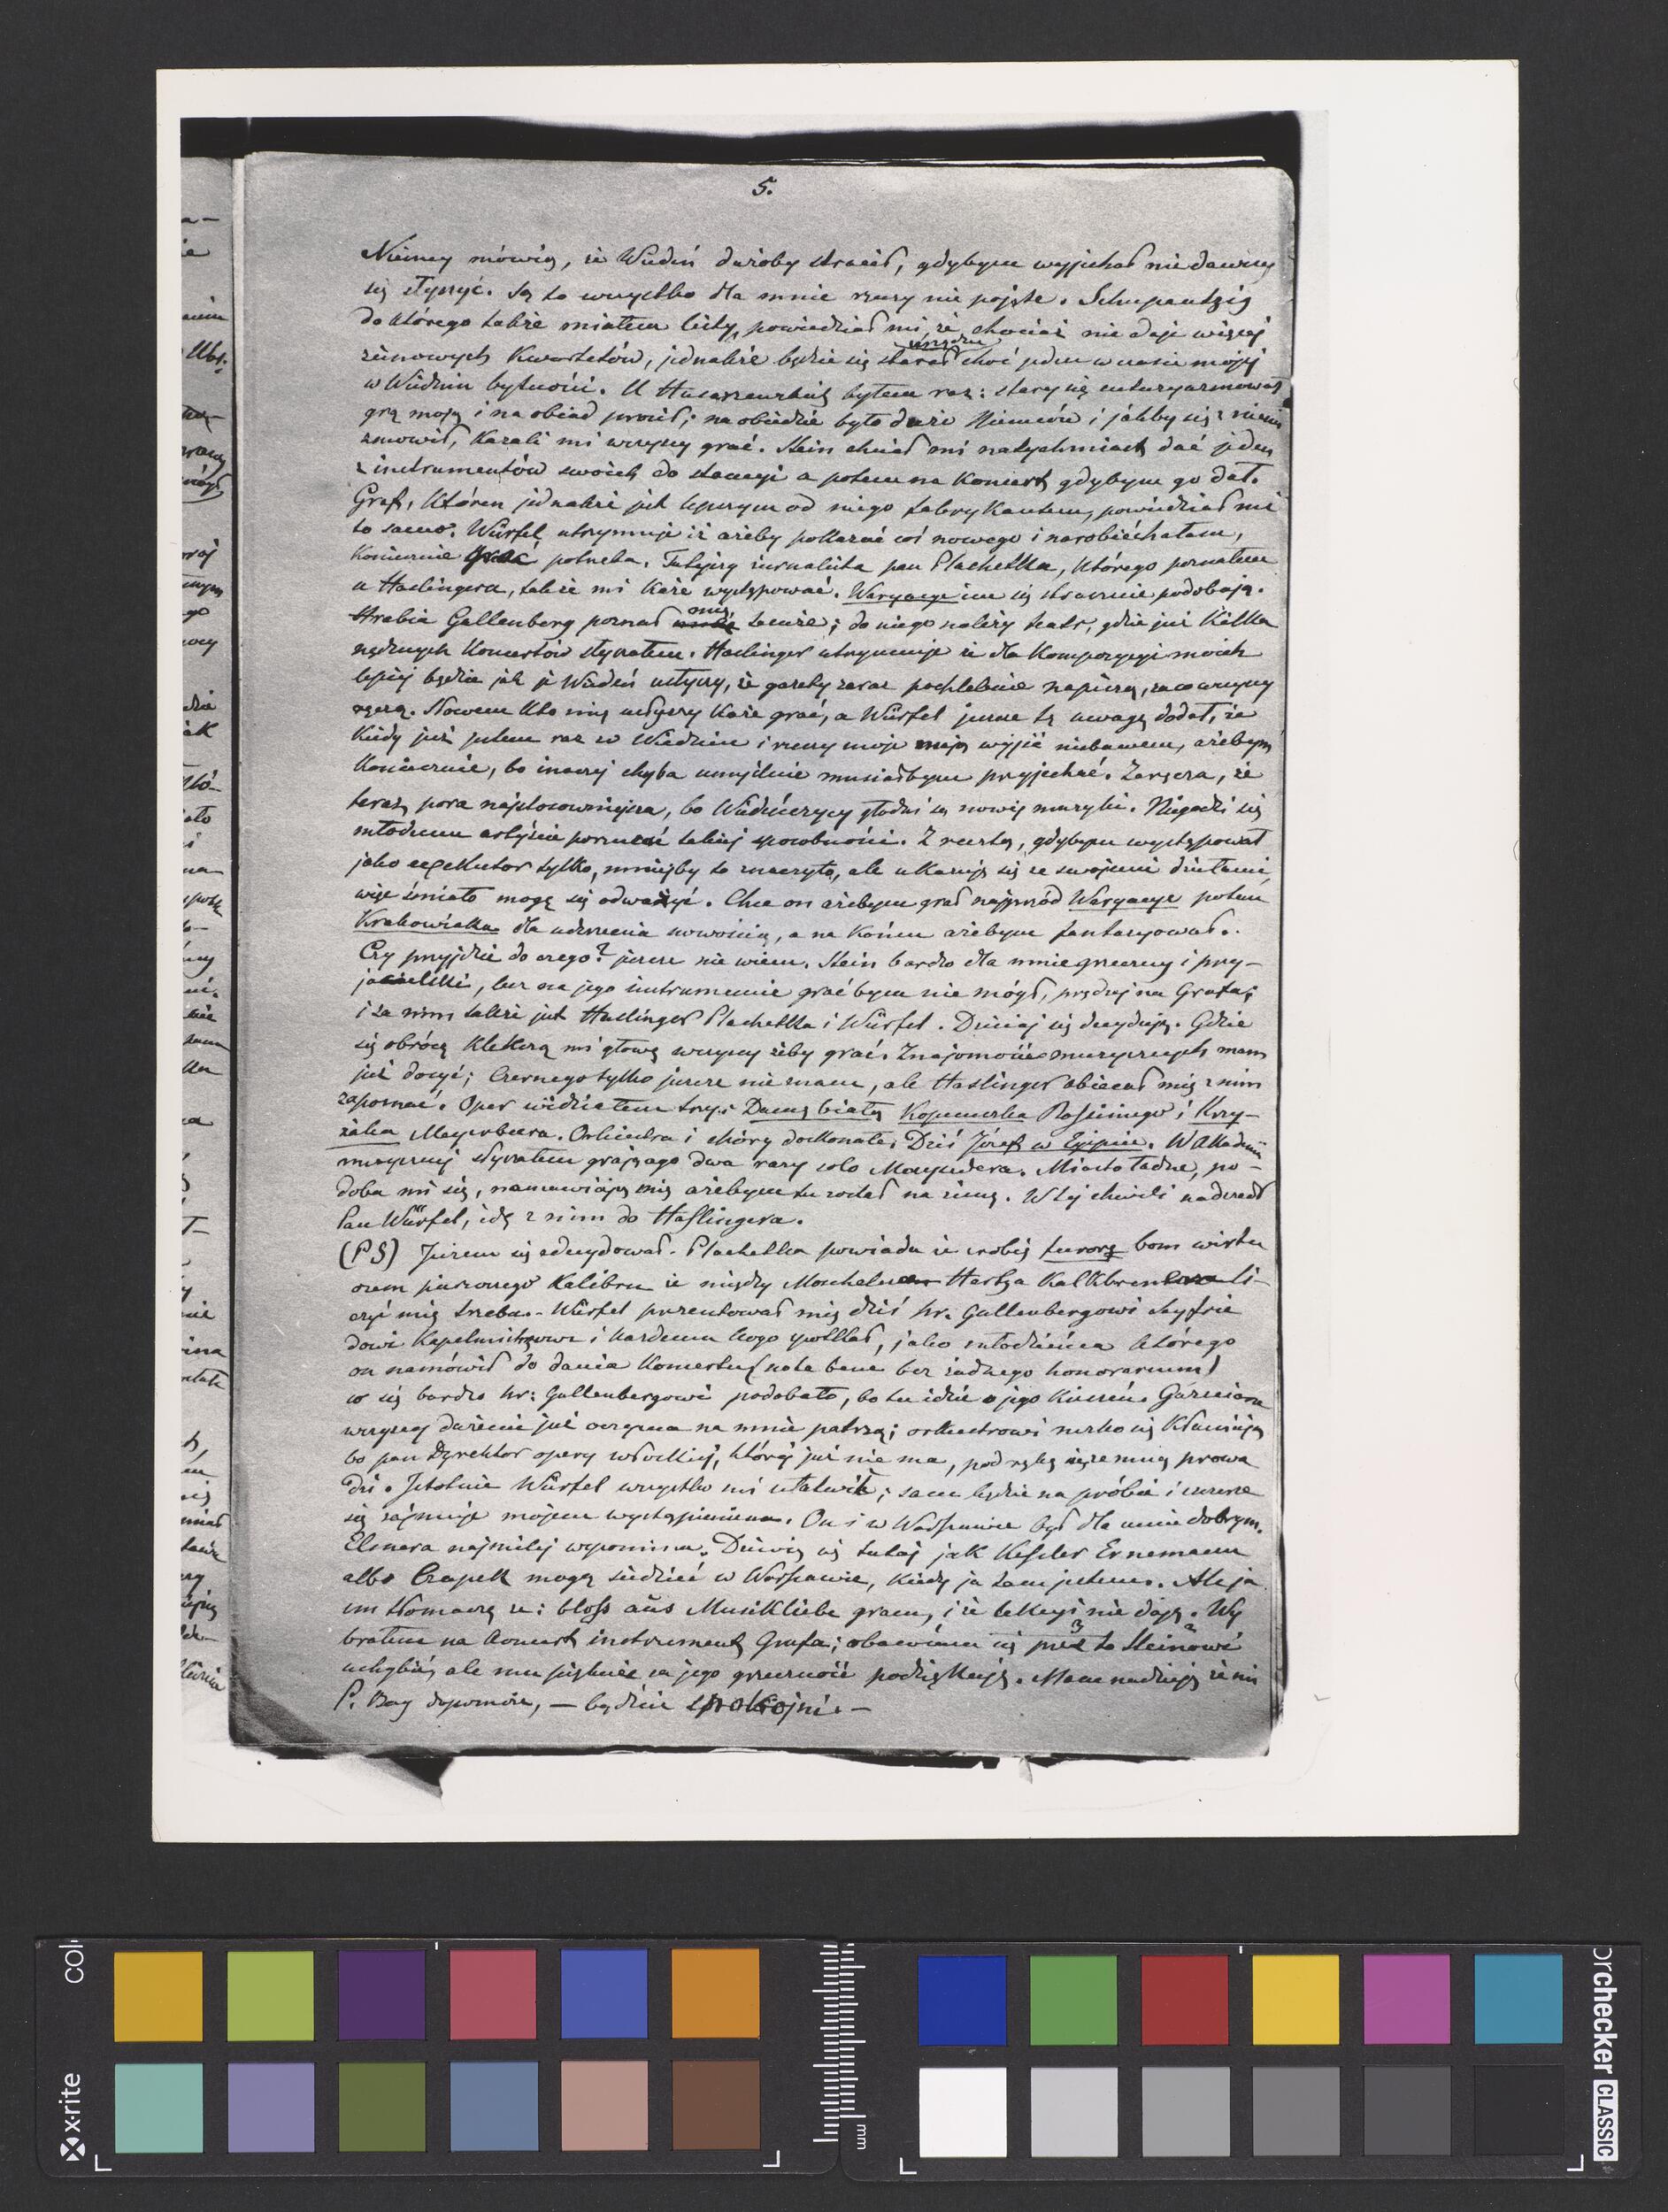 5.
Niemcy mówią, że Wiedeń dużoby stracił, gdybym wyjechał niedawszy
się słyszyć. Są to wszystko dla mnie rzeczy nie pojęte. Schupantzig
do którego także miałem listy, powiedział mi, że chociaż nie daje więcej
zimowych Kwartetów, jednakże będzie się starał urządzić choć jeden w czasie mojéj
w Wiedniu bytności. U Husarzewskich byłem raz: stary się entuzyazmował
grą moją i na obiad prosił; na obiedzie było dużo Niemców i jakby się z niemi
zmowił, Kazali mi wszyscy grać. Stein chciał mi natychmiast dać jeden
z instrumentów swoich do stancyi a potem na Koncert, gdybym go dał.
Graf, Któren jednakże jest lepszym od niego fabrykantem, powiedział mi
to samo. Würfel utrzymuje iż ażeby pokazać coś nowego i narobić hałasu,
Koniecznie grać potrzeba. Tutejszy żurnalista pan Blachetka, którego poznałem
u Haslingera, także mi każe występować. Waryacye im się strasznie podobają.
Hrabia Gallenberg poznał mię także; do niego należy teatr, gdzie już Kilka
nędznych Koncertów słyszałem. Haslinger utrzymuje że dla Kompozycyi moich
lepiéj będzie jak je Wiedeń usłyszy, że gazety zaraz pochlebnie napiszą, za co wszyscy
ręczą. Słowem kto mię usłyszy każe grać, a Würfel jeszcze tę uwagę dodał, że
Kiedy już jestem raz w Wiedniu i rzeczy moje mają wyjść niebawem, ażebym
Koniecznie, bo inaczéj chyba umyślnie musiałbym przyjechać. Zaręcza, że
teraz, pora najstosowniejsza, bo Wiedeńczycy głodni są nowéj muzyki. Niegodzi się
młodemu artyście porzucać takiéj sposobności. Z resztą, gdybym występował
jako exekutor tylko, mniejby to znaczyło, ale ukazuję się ze swojemi dziełami,
więc śmiało mogę się odważyć. Chce on ażebym grał najprzód Waryacye potem
Krakowiaka dla uderzenia nowością, a na Końcu ażebym fantazyował.
Czy przyjdzie do czego? jeszcze nie wiem. Stein bardzo dla mnie grzeczny i przy-
jacielski, lecz na jego instrumencie grać bym nie mógł, prędzéj na Grafa;
i za nim także jest Haslinger Blachetka i Würfel. Dzisiaj się decydują. Gdzie
się obrócę klekczą mi głowę wszyscy żeby grać. Znajomości muzycznych mam
już dosyć; Czernego tylko jeszcze nie znam, ale Haslinger obiecał mię z nim
zapoznać. Oper widziałem trzy: Damę białą Kopciuszka Rossiniego i Krzy-
żaka Mayerbeera. Orkiestra i chóry doskonałe. Dziś Józef w Egipcie. W Akademii
muzycznéj słyszałem grającego dwa razy solo Mayzedera. Miasto ładne, po-
doba mi się, namawiają mię ażebym tu został na zimę. W téj chwili nadszedł
Pan Würfel, idę z nim do Haslingera.
(PS) Jużem się zdecydował. Blachetka powiada że zrobię furorę bom wirtu
ozem pierwszego Kalibru że między Moschelesa Hertza Kalkbrennera li-
czyć mię trzeba. Würfel prezentował mię dziś hr. Gallenbergowi Seyfrie
dowi Kapelmistrzowi i każdemu kogo spotkał, jako młodzieńca którego
on namówił do dania Koncertu (nota bene bez żadnego honorarium)
co się bardzo hr: Gallenbergowi podobało, bo tu idzie o jego Kieszeń. Gazeciarze
wszyscy dużemi już oczyma na mnie patrzą; orkiestrowi nizko się kłaniają
bo pan Dyrektor opery włoskiéj, któréj już nie ma, pod rękę się ze mną prowa
dzi. Istotnie Würfel wszystko mi ułatwił; sam będzie na próbie i szczerze
się zajmuje mojem wystąpieniem. On i w Warszawie był dla mnie dobrym.
Elsnera najmiléj wspomina. Dziwią się tutaj jak Kessler Ernemann
albo Czapek mogą siedzieć w Warszawie, Kiedy ja tam jestem. Ale ja
im tłomaczę że: bloss aus Musikliebe gram, i że lekcyi nie daję. Wy
brałem na Koncert instrument Grafa; obawiam się przez to Steinowi
uchybić, ale mu pięknie za jego grzeczność podziękuję. Mam nadzieję że mi
P. Bóg dopomoże, — bądźcie spokojni. —